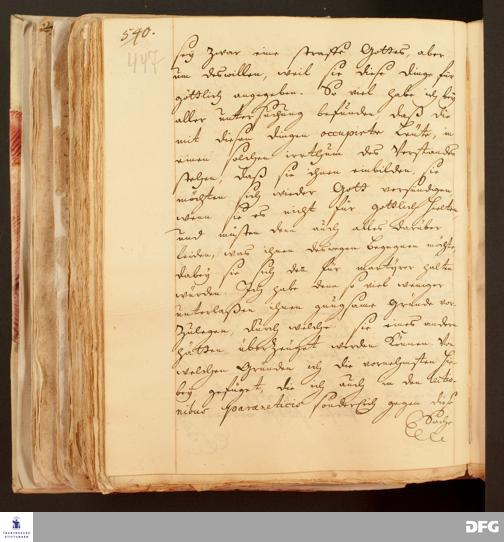 540.
447
sey zwar eine straffe Gottes, aber
um deswillen, weil sie diese dinge für
göttlich angegeben. So viel habe ich bey
aller untersuchung befunden, daß die
mit diesen dingen occupirte Leute, in
einen solchen irrthum des Verstandes
stehen, daß sie ihnen einbilden, sie
möchten sich wieder Gott versündigen
wenn sie es nicht für göttlich hielten
und müsten denn auch alles darüber
leiden, was ihnen deswegen begegnen möchte,
dabey sie sich denn für martyrer halten
würden. Ich habe denn so viel weniger
unterlaßen ihnen gnugsame gründe vor
zulegen, durch welche sie eines andern
hätten überzeuget werden können. Von
welchen Gründen ich die vornehmsten hie
bey gefüget, die ich auch in den lectio-
nibus paraeneticis sonderlich gegen diese
FRANCKESCHE
STIFTUNGEN
DFG